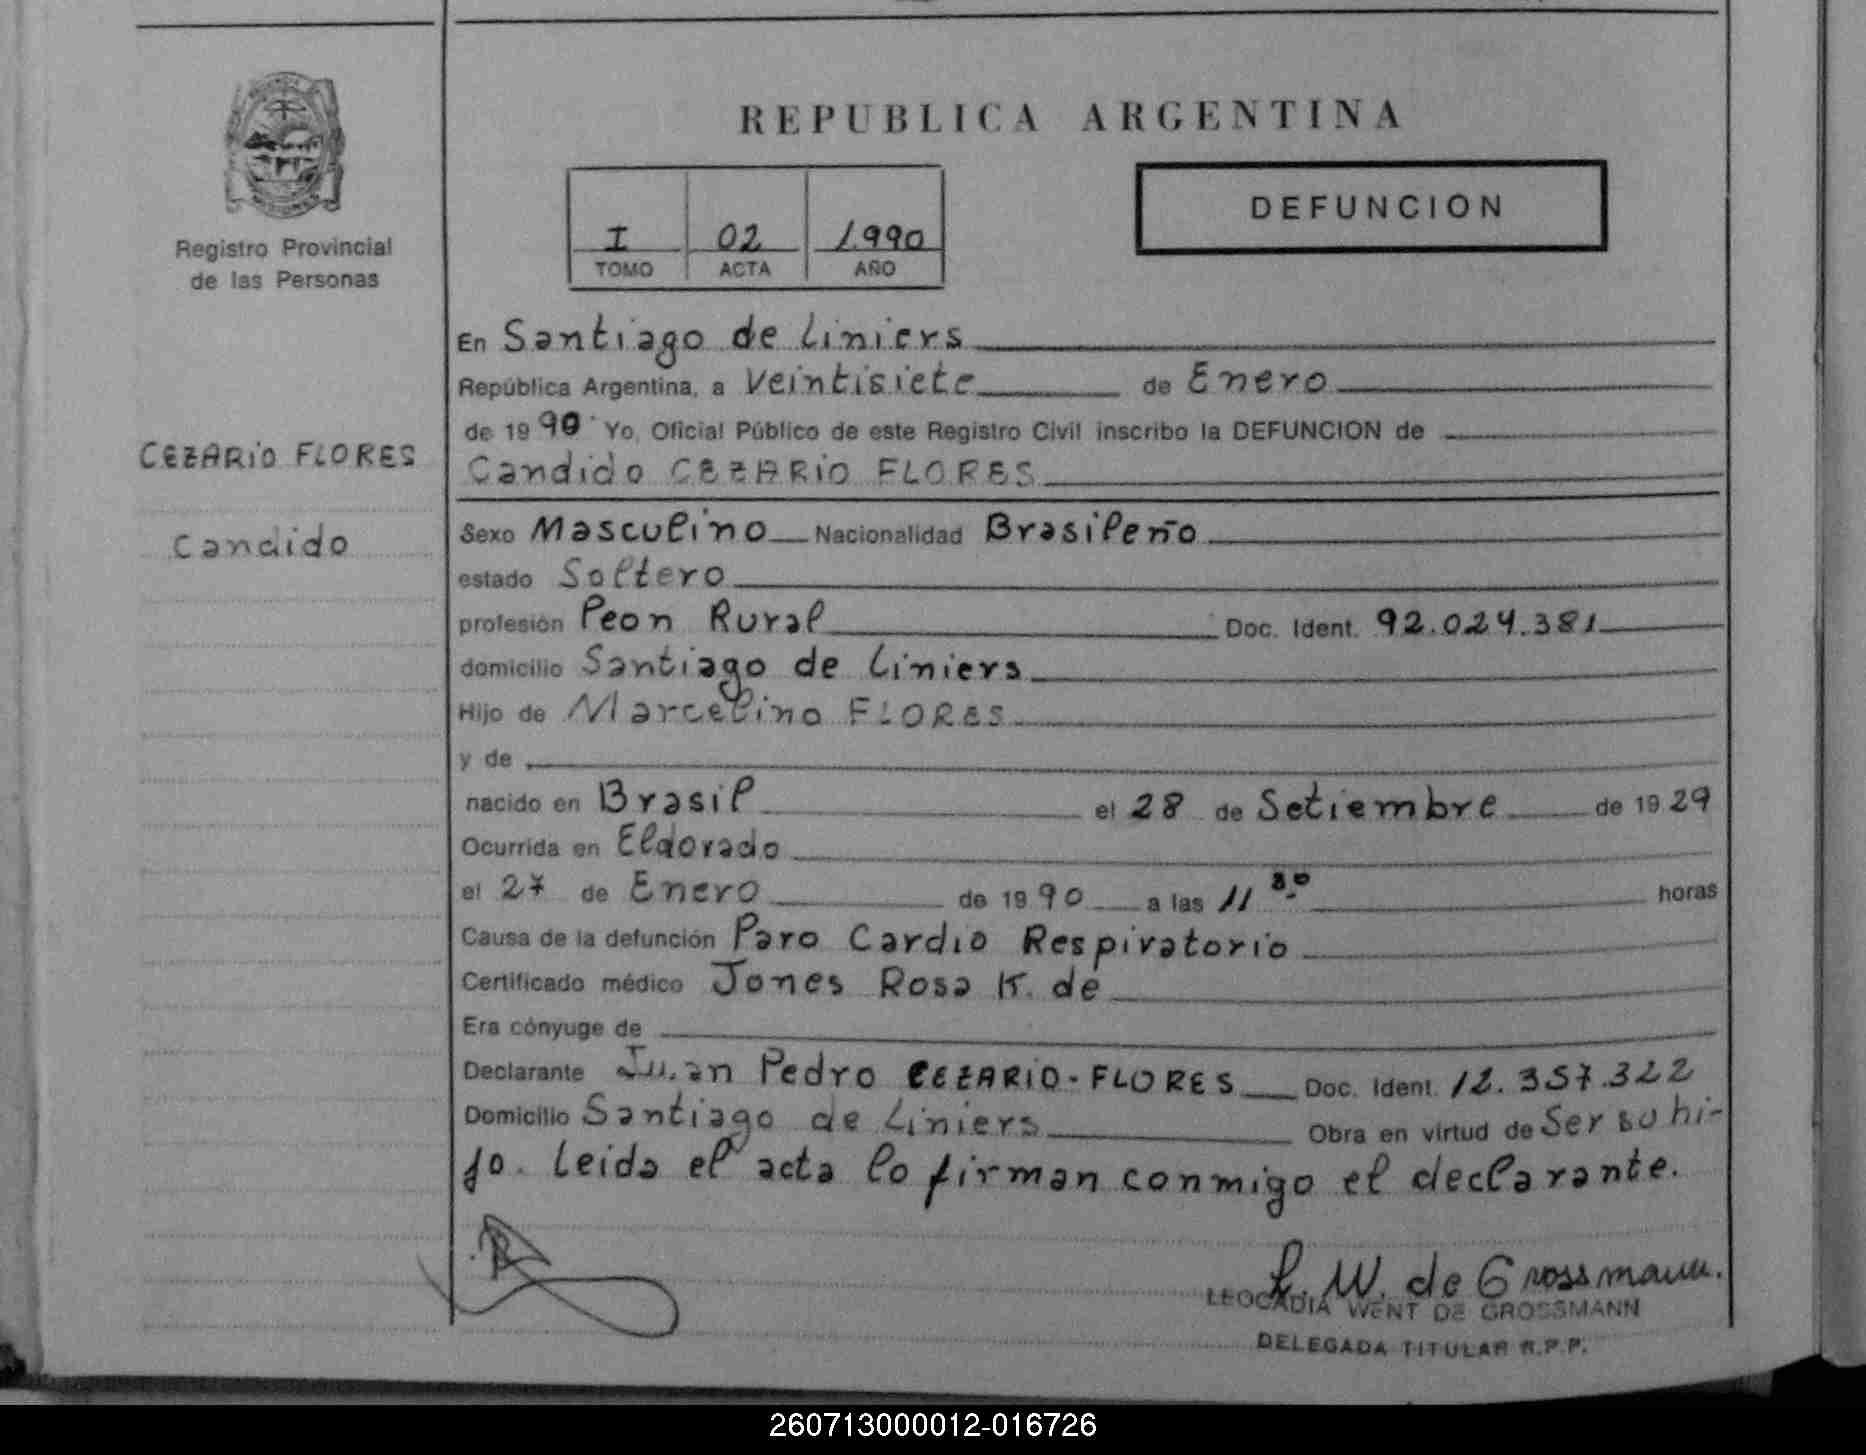 REPUBLICA ARGENTINA
Registro Provincial
de las Personas
I 02 1.990
TOMO ACTA AÑO
DEFUNCION
CEZARIO FLORES
Candido
En Santiago de Liniers
República Argentina, a veintisiete de Enero
de 1990 Yo, Oficial Público de este Registro Civil inscribo la DEFUNCION de
Candido CEZARIO FLORES
Sexo Masculino Nacionalidad Brasileño
estado Soltero
profesión Peon Rural Doc. Ident. 92.024.381
domicilio Santiago de Liniers
Hijo de Marcelino FLORES
y de
nacido en Brasil el 28 de Setiembre de 1929
Ocurrida en Eldorado
el 27 de Enero de 1990 a las 11 30 horas
Causa de la defunción Paro Cardio Respiratorio
Certificado médico Jones Rosa K. de
Era cónyuge de
Declarante Juan Pedro CEZARIO-FLORES Doc. Ident. 12.357.322
Domicilio Santiago de Liniers Obra en virtud de Ser su hi-
jo. Leida el acta lo firman conmigo el declarante.
L. W. de Grossmann.
LEOCADIA WENT DE GROSSMANN
DELEGADA TITULAR R.P.P.
260713000012-016726